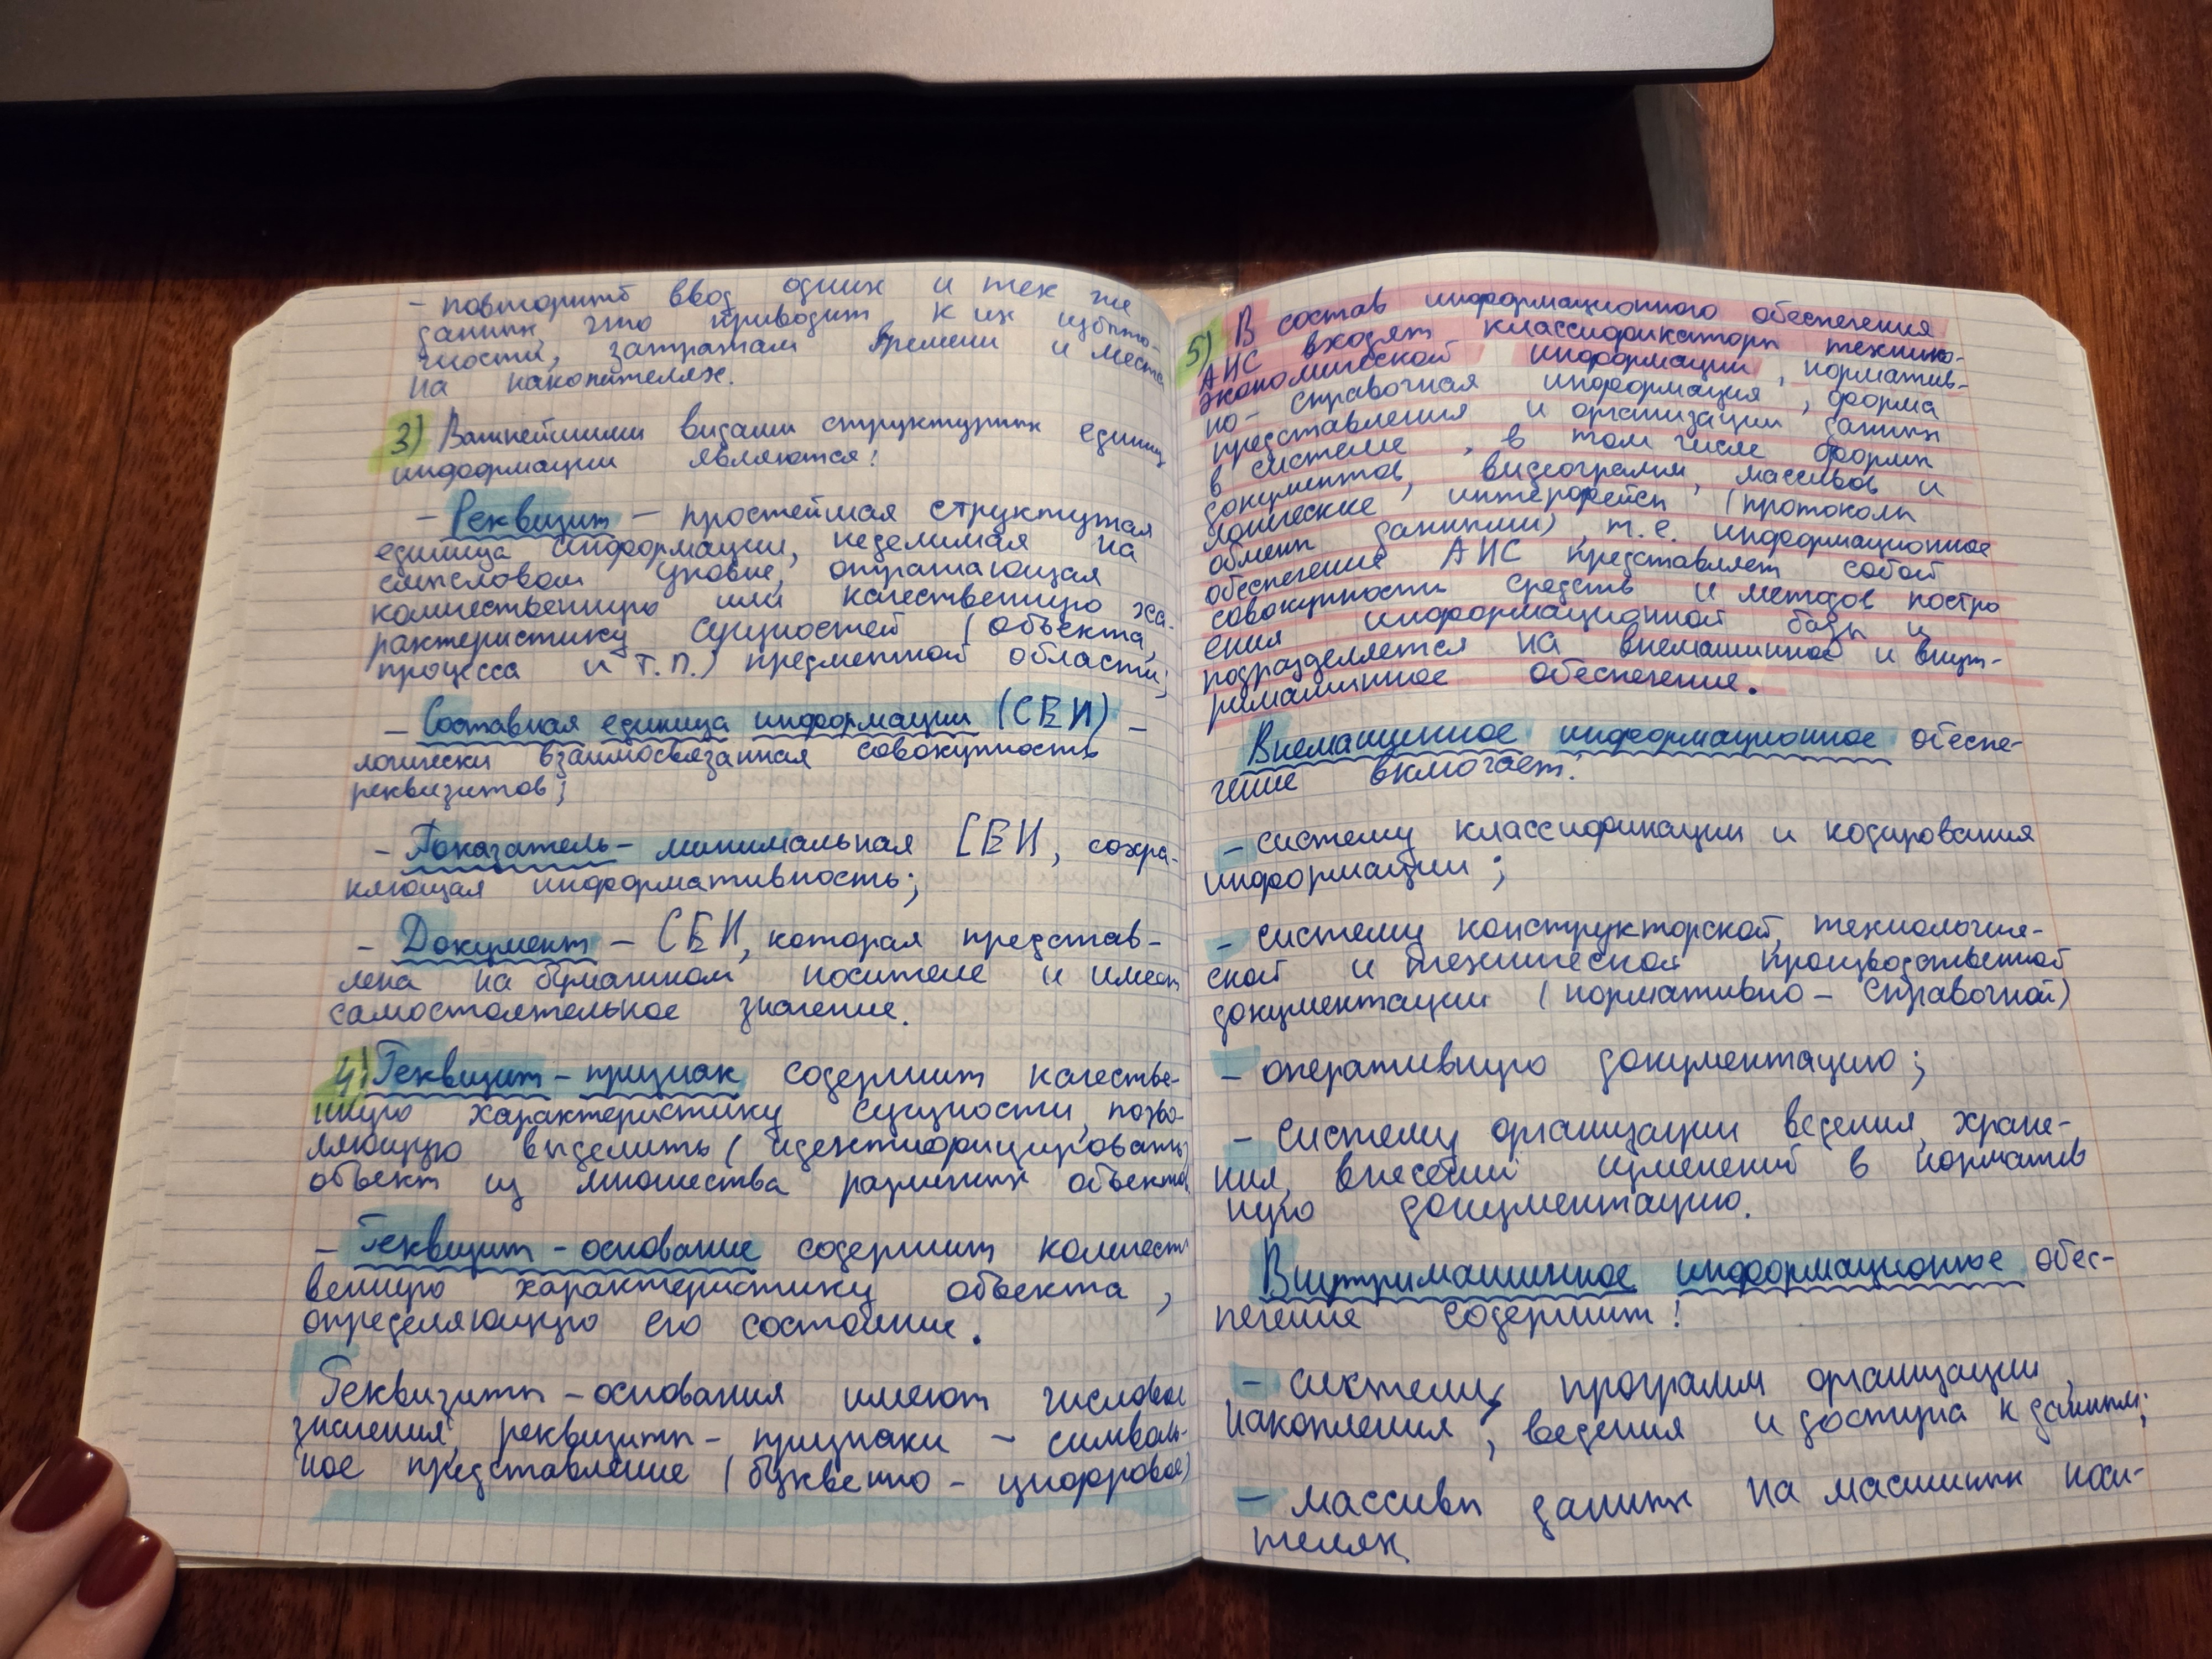 - повторить ввод одних и тех же
данных, что приводит к их избыто-
чности, затратам времени и места
на накопителях.
3) Важнейшими видами структурных единиц
информации являются:
- Реквизит - простейшая структурная
единица информации, неделимая на
смысловом уровне, отражающая
количественную или качественную ха-
рактеристику сущностей (объекта,
процесса и т.п.) предметной области;
- Составная единица информации (СЕИ) -
логически взаимосвязанная совокупность
реквизитов;
- Показатель - минимальная СЕИ, сохра-
няющая информативность;
- Документ - СЕИ, которая представ-
лена на бумажном носителе и имеет
самостоятельное значение.
4) Реквизит - признак содержит качестве-
нную характеристику сущности, позво-
ляющую выделить (идентифицировать)
объект из множества различных объектов
- Реквизит - основание содержит количест
венную характеристику объекта,
определяющую его состояние.
Реквизиты - основания имеют числовое
значения, реквизиты - признаки - символь-
ное представление (буквенно - цифровое)
5) В состав информационного обеспечения
АИС входят классификаторы технико-
экономической информации, норматив-
но - справочная информация, форма
представления и организации данных
в системе, в том числе формы
документов, видеограмм, массивов и
логические интерфейсы (протоколы
обмена данными), т.е. информационное
обеспечение АИС представляет собой
совокупность средств и методов постро
ения информационной базы и
подразделяется на внемашинное и внут-
римашинное обеспечение.
Внемашинное информационное обеспе-
чение включает:
- систему классификации и кодирования
информации;
- систему конструкторской, технологиче-
ской и технической производственной
документации (нормативно - справочной)
- оперативную документацию;
- систему организации ведения, хране-
ния, внесений изменений в норматив
ную документацию.
Внутримашинное информационное обес-
печение содержит:
- системы программ организации,
накопления, ведения и доступа к данным;
- массивы данных на машинных носи-
телях